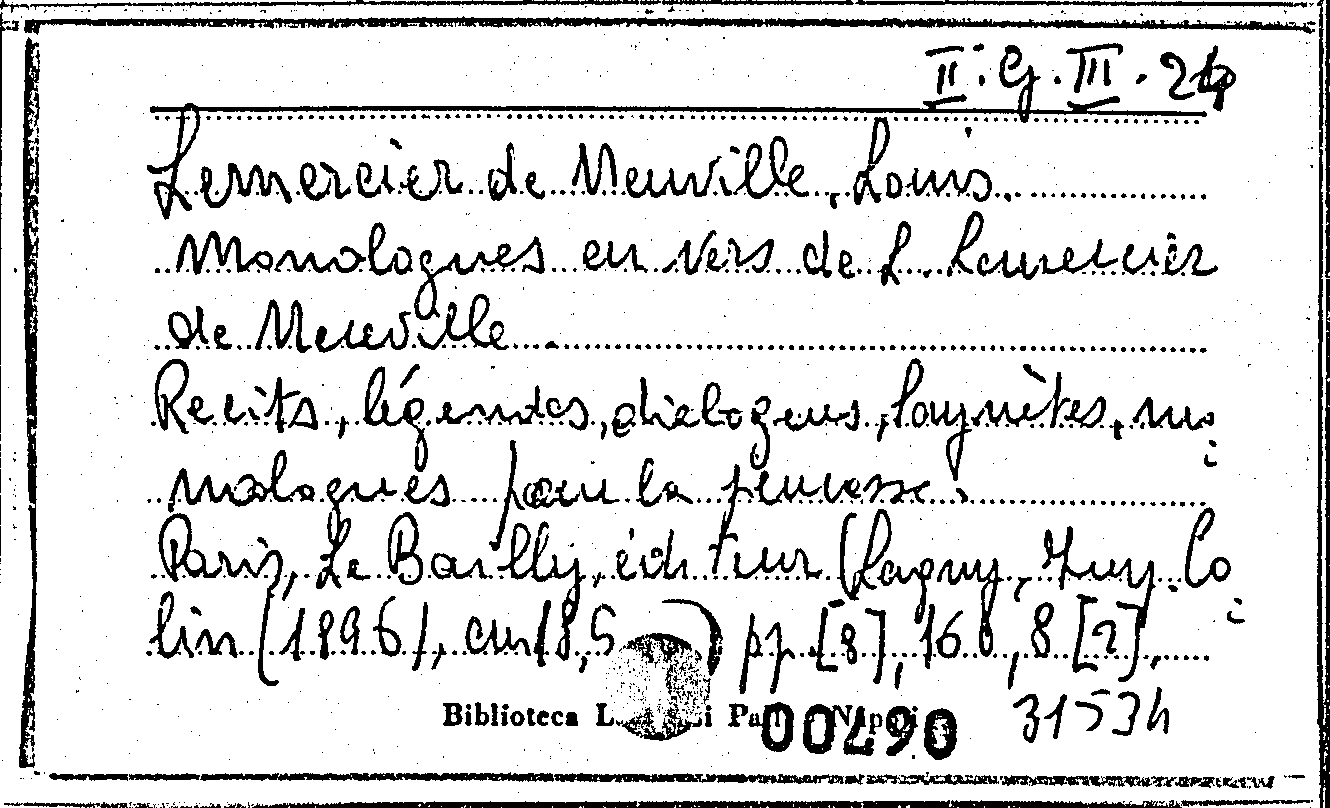 II. G. III. 24
Lemercier de Neuville, Louis.
Monologues en vers de L. Lemercier
de Neuville.
Recits, légendes, dialogues, saynètes, mo
nologues pour la jeunesse.
Paris, Le Bailly, éditeur (Lagny, Imp. Co
lin (1896), cm 18,5 pp. [8], 160, 8 [2].
Biblioteca
00490
31534